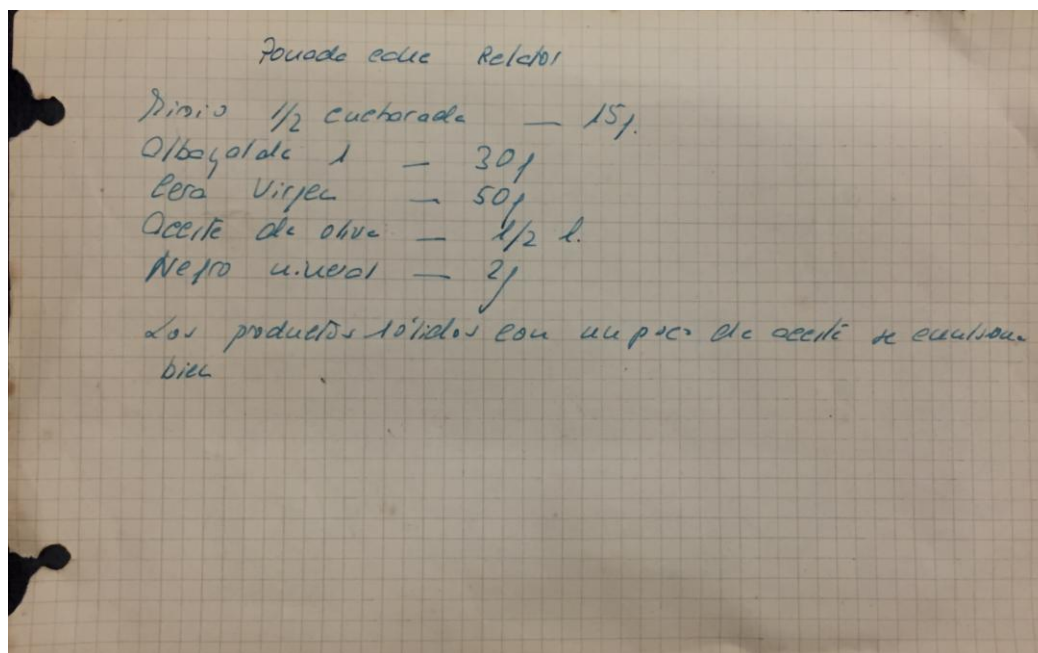 Pomada
Minio 1/2 cucharada — 15g.
Albayalde 1 — 30g
Cera Virgen — 50g
Aceite de oliva — 1/2 l.
Negro mineral — 2g
Los productos sólidos con un poco de aceite se emulsiona
bien